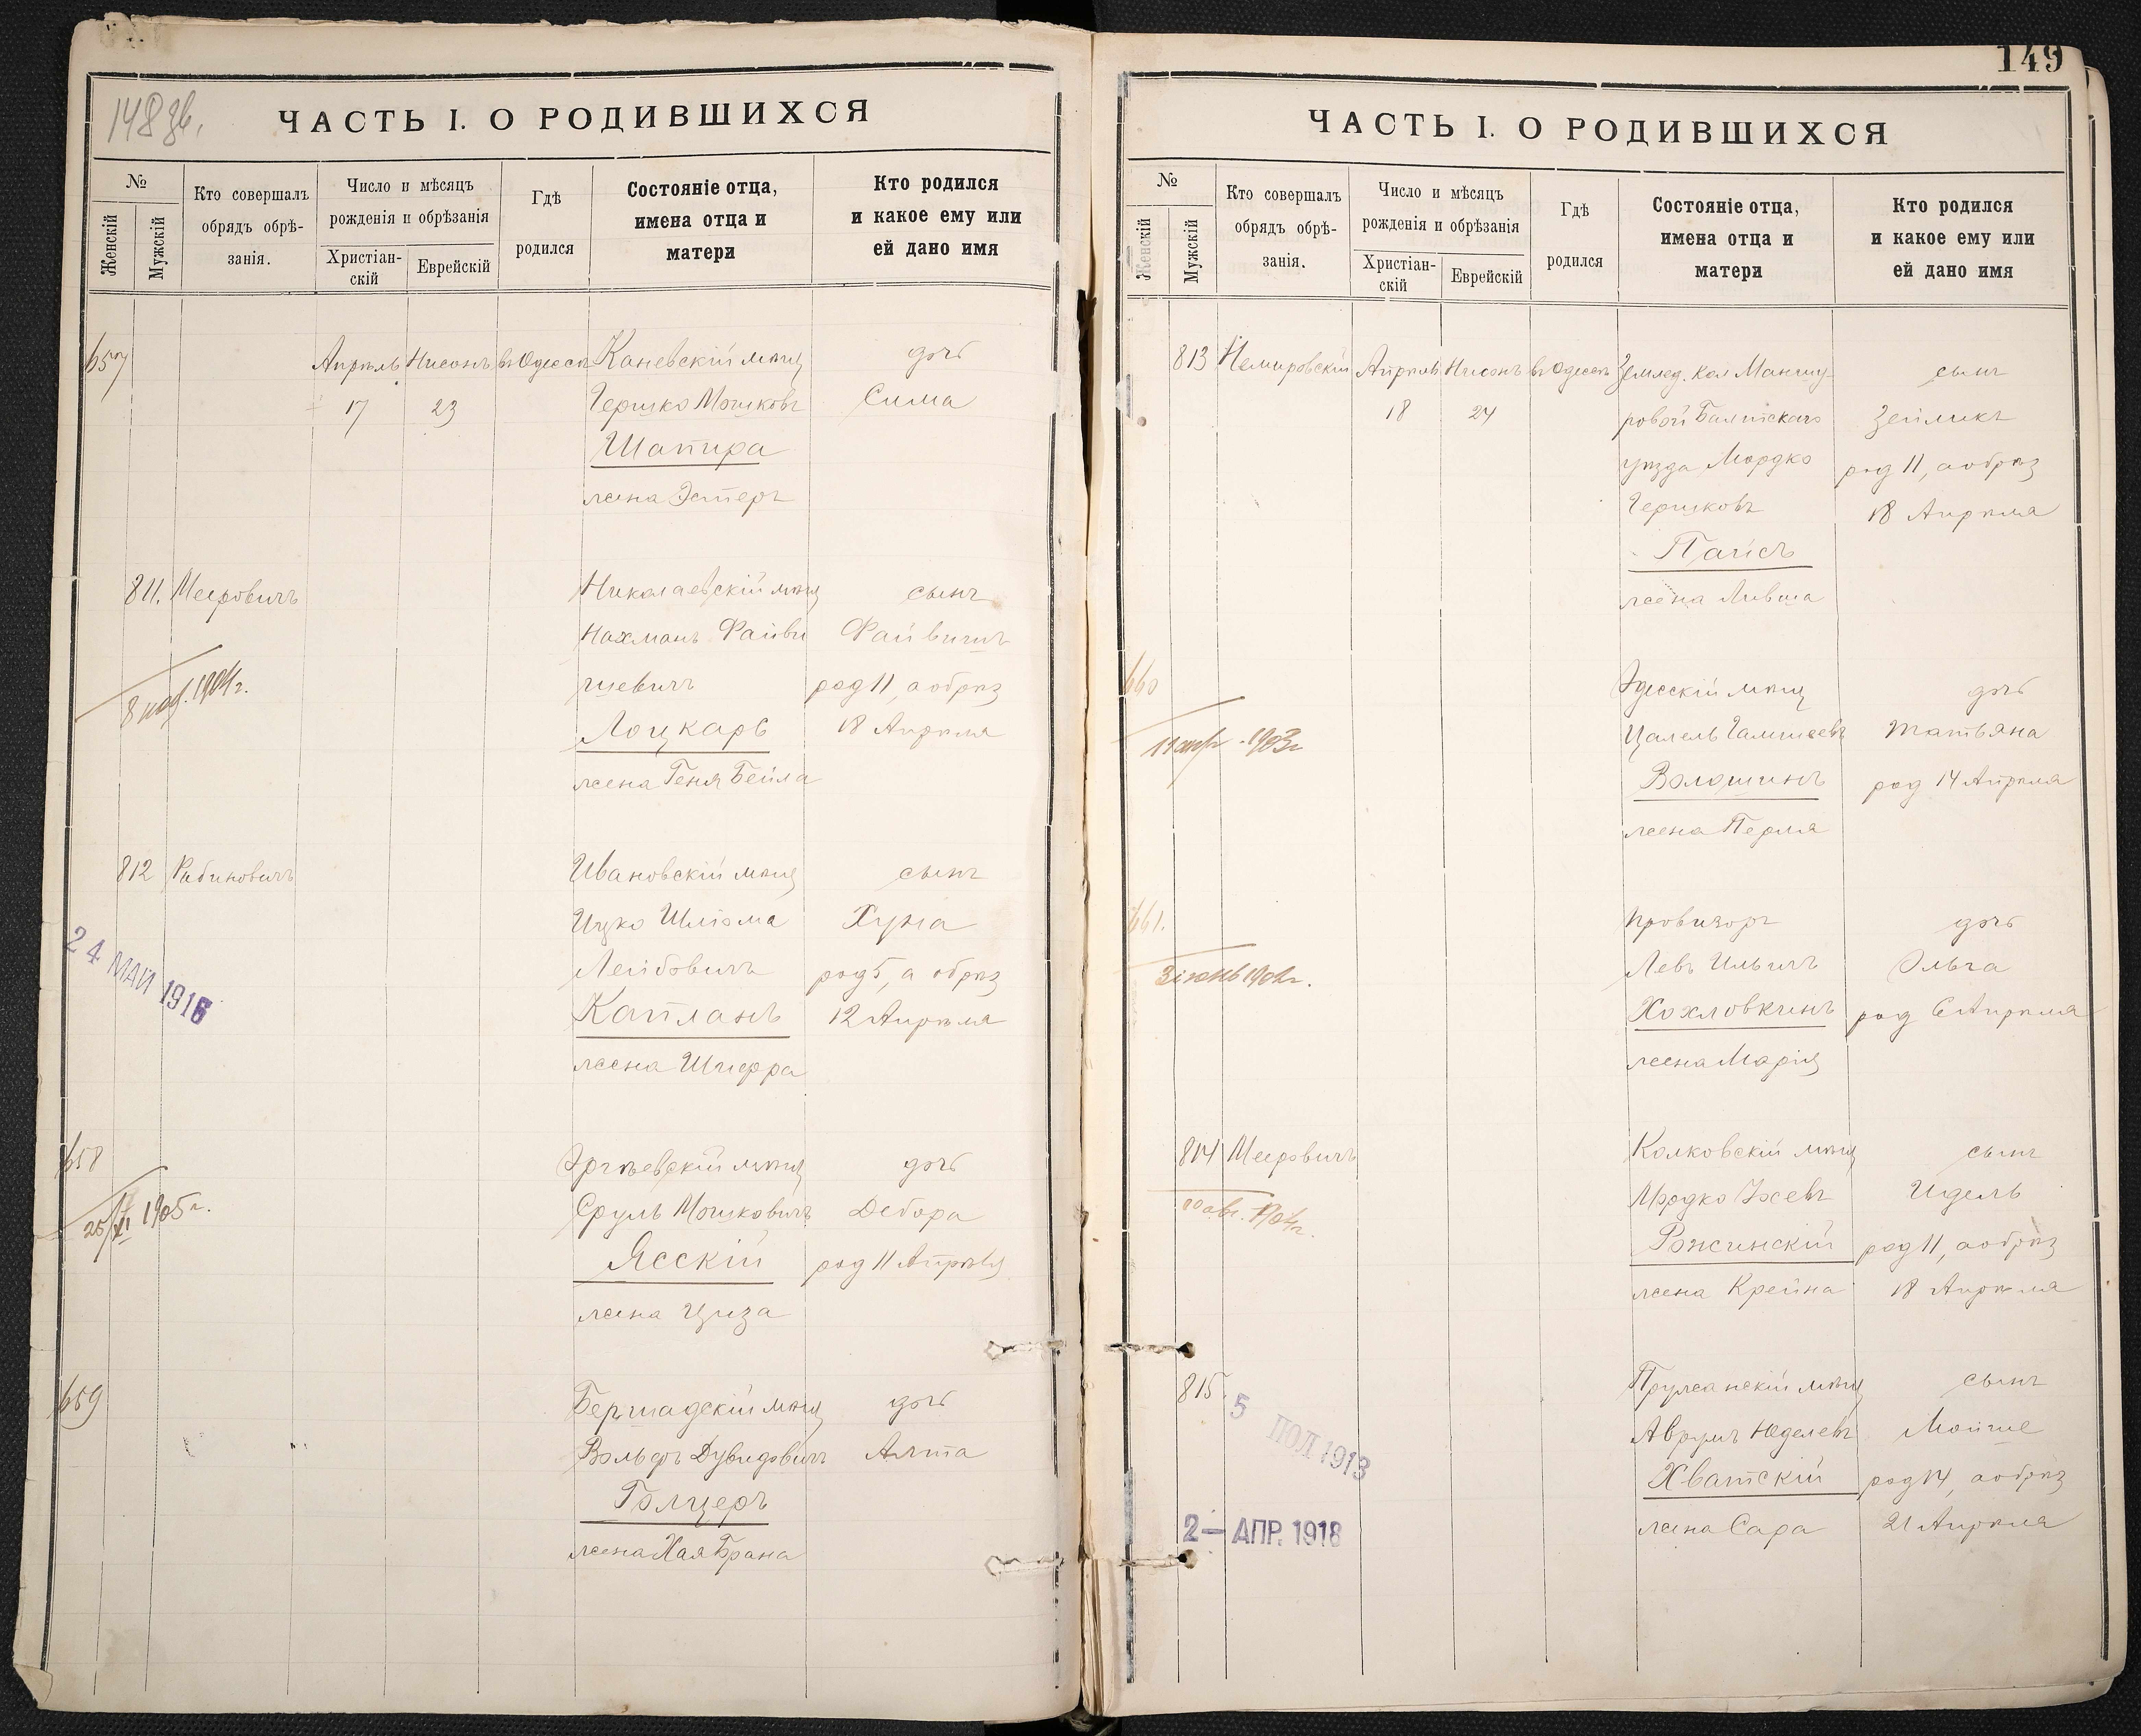 148 зв.
ЧАСТЬ I. О РОДИВШИХСЯ
№
Женскій
Мужскій
Кто совершалъ
обрядъ обрѣ-
занія.
Число и мѣсяцъ
рожденія и обрѣзанія
Христіан-
скій
Еврейскій
Гдѣ
родился
Состояніе отца,
имена отца и
матери
Кто родился
и какое ему или
ей дано имя
657 Апрѣль Нисонъ въ Одессѣ Каневскій мѣщ дочь
17 23 Гершко Мошковъ Сима
Шапира
жена Эстеръ
811. Мееровичъ Николаевскій мѣщ сынъ
Нахманъ Файви Файвишъ
шевичъ род 11, а обрѣз
8 1904 г.
Лоцкарь 18 Апрѣля
жена Геня Бейла
812 Рабиновичъ Ивановскій мѣщ сынъ
Ицко Шлiома Хуна
24 МАЙ 1916
Лейбовичъ род 5, а обрѣз
Капланъ 12 Апрѣля
жена Шифра
658 мѣщ дочь
25/XI 1905 г.
Сруль Мошковичъ Дебора
Ясскій род 11 Апрѣля
жена Циза
659 Бершадскій мѣщ дочь
Вольфъ Дувидовичъ Алта
Голцеръ
жена Хая Брана
149
ЧАСТЬ I. О РОДИВШИХСЯ
№
Женскій
Мужскій
Кто совершалъ
обрядъ обрѣ-
занія.
Число и мѣсяцъ
рожденія и обрѣзанія
Христіан-
скій
Еврейскій
Гдѣ
родился
Состояніе отца,
имена отца и
матери
Кто родился
и какое ему или
ей дано имя
813 Немировскій Апрѣль Нисонъ въ Одессѣ Землед. кол Манжу- сынъ
18 24 ровой Балтскаго Зейликъ
уѣзда Мордко род 11, а обрѣз
Гершковъ 18 Апрѣля
Паисъ
жена Ливша
660 Одесскій мѣщ дочь
Цалель Татьяна
1903 г
Волошинъ род 14 Апрѣля
жена Перля
661. Провизоръ дочь
Левъ Ильичъ Ольга
Хохловкинъ род 6 Апрѣля
жена Марія
814 Мееровичъ Колковскій мѣщ сынъ
Мордко Идель
10 авг. 1904 г.
Рожинскій род 11, а обрѣз
жена Крейна 18 Апрѣля
815. Пружанскій мѣщ сынъ
5 ПОЛ 1913
Аврумъ Юделевъ Мойше
Хватскій род 14, а обрѣз
2- АПР. 1918
жена Сара 21 Апрѣля